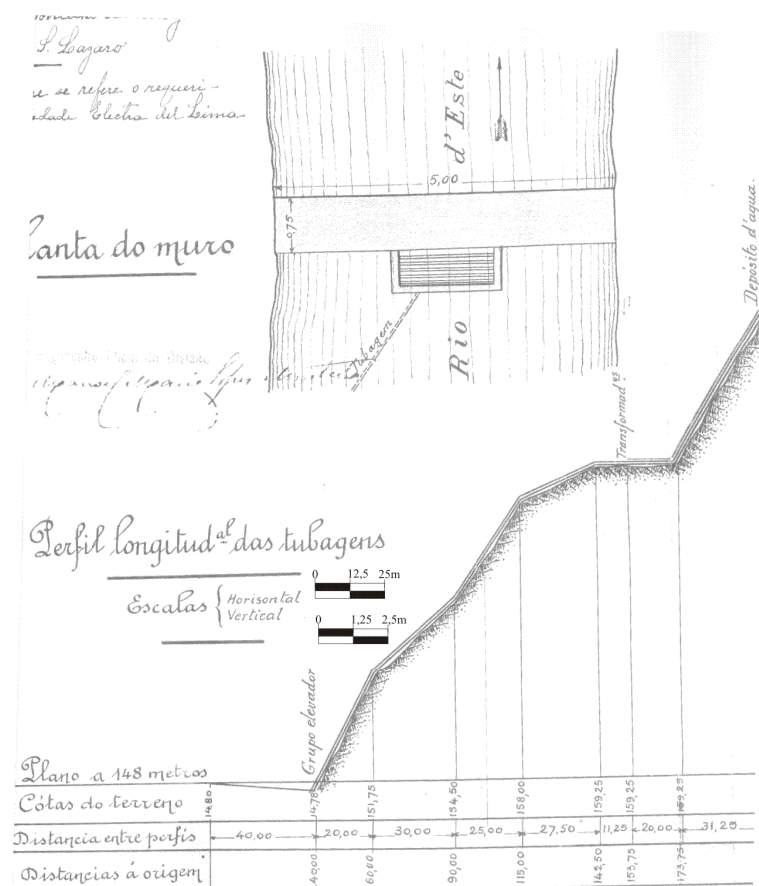 S. Lazaro
se refere o requeri-
Electra del Lima
d'Este
5,00
0,75
anta do muro
Tubagem
Rio
Depósito d'agua
Transformad.es
Perfil longitud.al das tubagens
0 12,5 25m
Escalas { Horisontal
Vertical
0 1,25 2,5m
Grupo elevador
Plano a 148 metros
Cótas do terreno 14,80 14,78 151,75 154,50 158,00 159,25 159,25 159,25
Distancia entre perfis 40,00 20,00 30,00 25,00 27,50 11,25 20,00 31,25
Distancias á origem 40,00 60,00 90,00 115,00 142,50 153,75 173,75